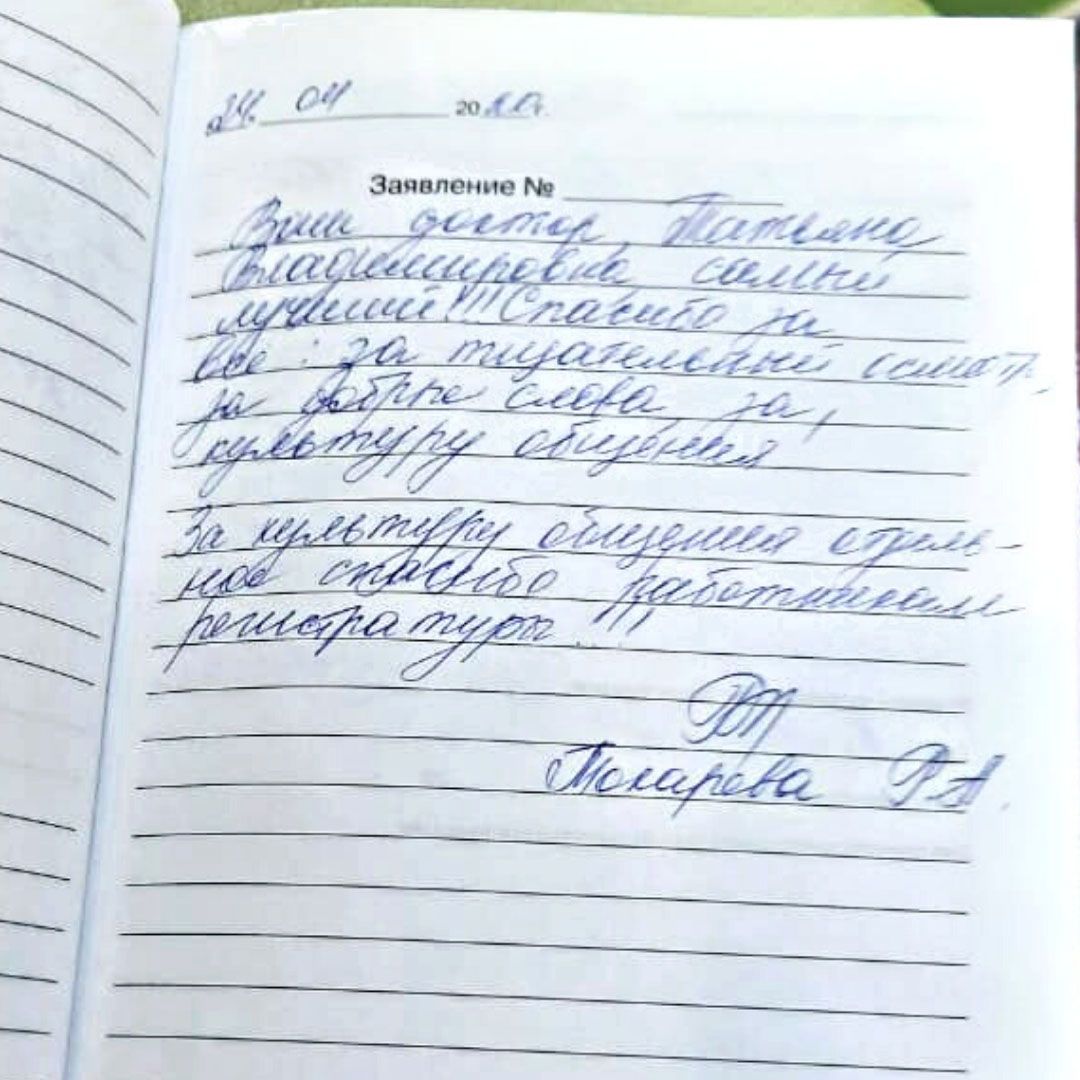 24. 04 2020г.
Заявление №
Ваш доктор, Татьяна
Владимировна, самый
лучший!!! Спасибо за
все: за тщательный осмотр,
за добрые слова, за
культуру общения
За культуру общения отдель-
ное спасибо работникам
регистратуры...!!!
РТ
Токарева Р.А.